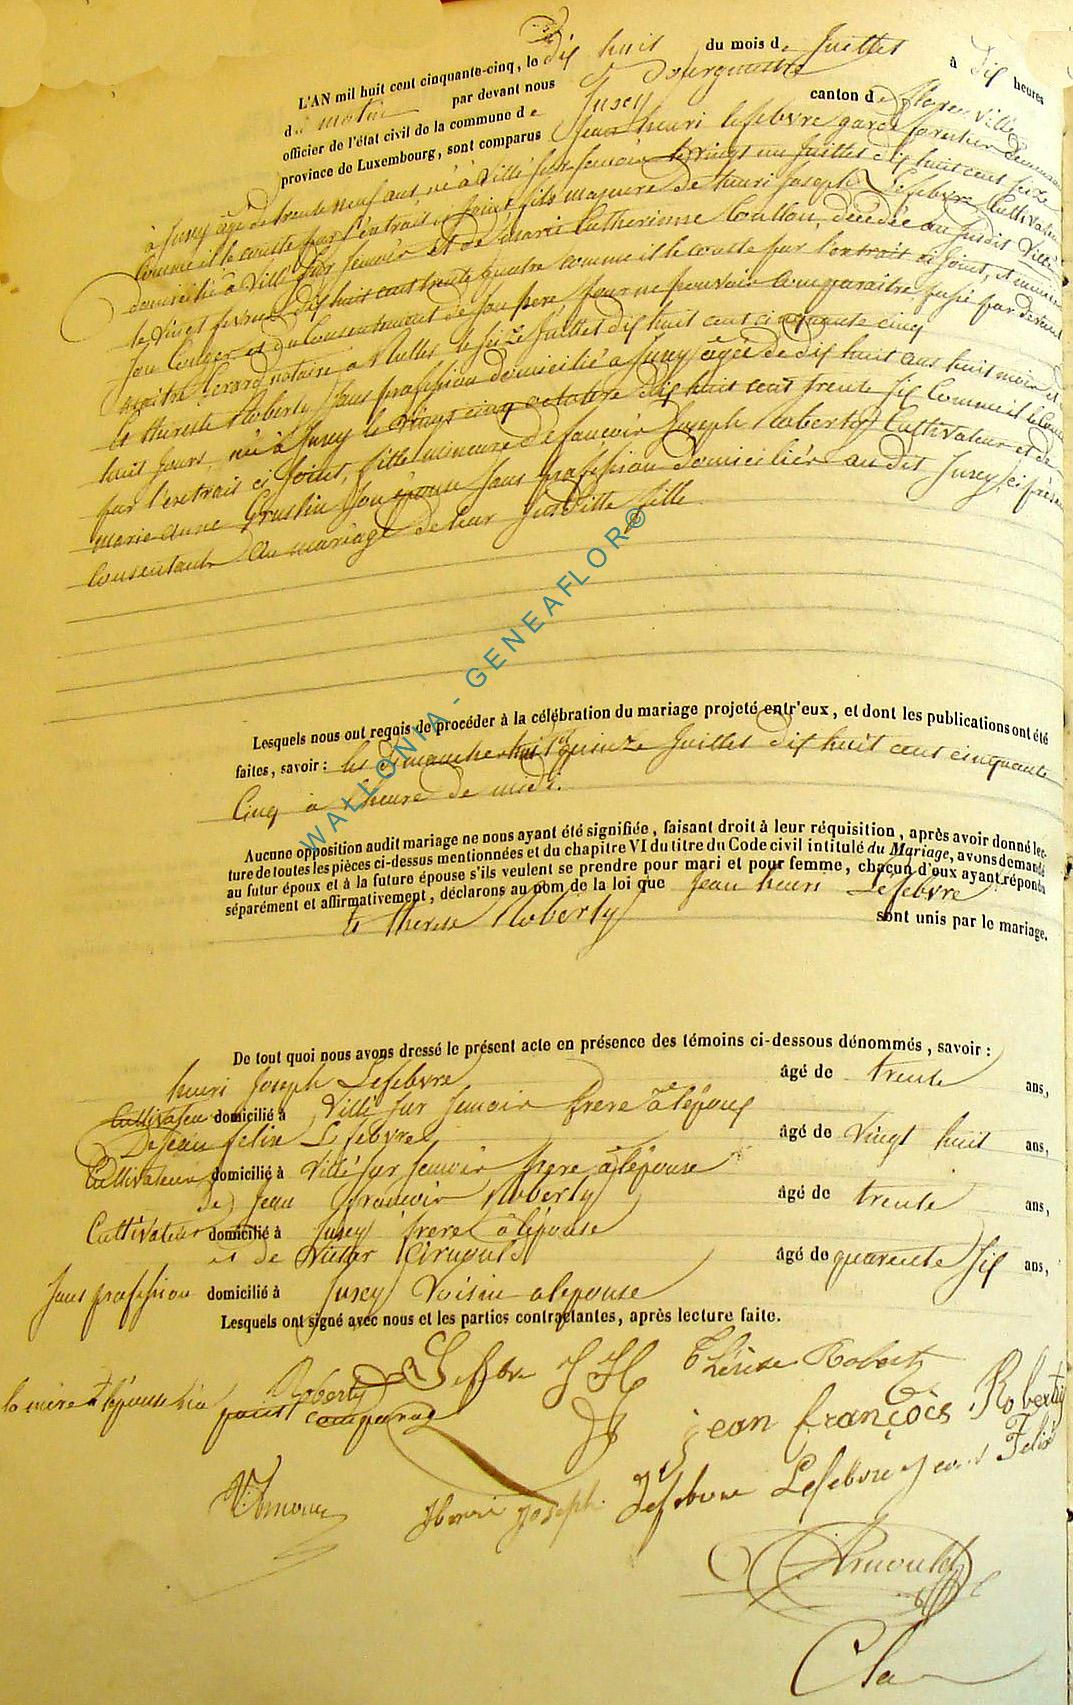 L'AN mil huit cent cinquante-cinq, le dix huit du mois de Juillet à dix heures
du matin par devant nous Bourgmestre
officier de l'état civil de la commune de Jusey canton de florenville
province de Luxembourg, sont comparus Jean henri lefebvre garde forestier
à Jusey âgé de trente neuf ans, né à Villé sur semois le vingt un Juillet dix huit cent seize
comme il le conste par l'extrait ci joint fils majeure de henri Joseph Lefebvre Cultivateur
domicilié à Villé sur semois et de marie Catherinne Coullon, décédée au susdit Villé
le vingt fevrier dix huit cent trente quatre comme il le conste par l'extrait ci joint,
du Consentement de son pere pour ne pouvoir Comparaitre passé par devant
maitre notaire a le seize Juillet dix huit cent cinquante cinq
et therese Roberty sans profession domicilié à Jusey âgée de dix huit ans huit mois et
huit jours, née à Jusey le vingt cinq octobre dix huit cent trente six Comme il le Conste
par l'extrait ci joint, fille mineure de francoir Joseph Roberty Cultivateur et de
marie anne son épouse sans profession domiciliés au dit Jusey, ci présent
Consentant au mariage de leur susditte fille
Lesquels nous ont requis de procéder à la célébration du mariage projeté entr'eux, et dont les publications ont été
faites, savoir : les dimanche huit et quinze Juillet dix huit cent cinquante
Cinq à l'heure de midi.
Aucune opposition audit mariage ne nous ayant été signifiée, faisant droit à leur réquisition, après avoir donné lec-
ture de toutes les pièces ci-dessus mentionnées et du chapitre VI du titre du Code civil intitulé du Mariage, avons demandé
au futur époux et à la future épouse s'ils veulent se prendre pour mari et pour femme, chacun d'eux ayant répondu
séparément et affirmativement, déclarons au nom de la loi que Jean henri Lefebvre
et therese Roberty sont unis par le mariage.
De tout quoi nous avons dressé le présent acte en présence des témoins ci-dessous dénommés, savoir :
henri Joseph Lefebvre âgé de trente ans,
Cultivateur domicilié à Villé sur semois frere à lépoux
De Jean felix Lefebvre âgé de Vingt huit ans,
Cultivateur domicilié à Villé sur semois frere à lépouse
de Jean francoir Roberty âgé de trente ans,
Cultivateur domicilié à Jusey frere à lépouse
et de Victor Arnould âgé de quarente six ans,
sans profession domicilié à Jusey Voisin a lepouse
Lesquels ont signé avec nous et les parties contractantes, après lecture faite.
Lefebvre J H Thérèse Roberty
la mère à lépouse n'a Roberty
point comparue jean françois Roberty
Henri Joseph Lefebvre Lefebvre Jean Felix
Arnould
WALLONIA - GENEAFLOR©